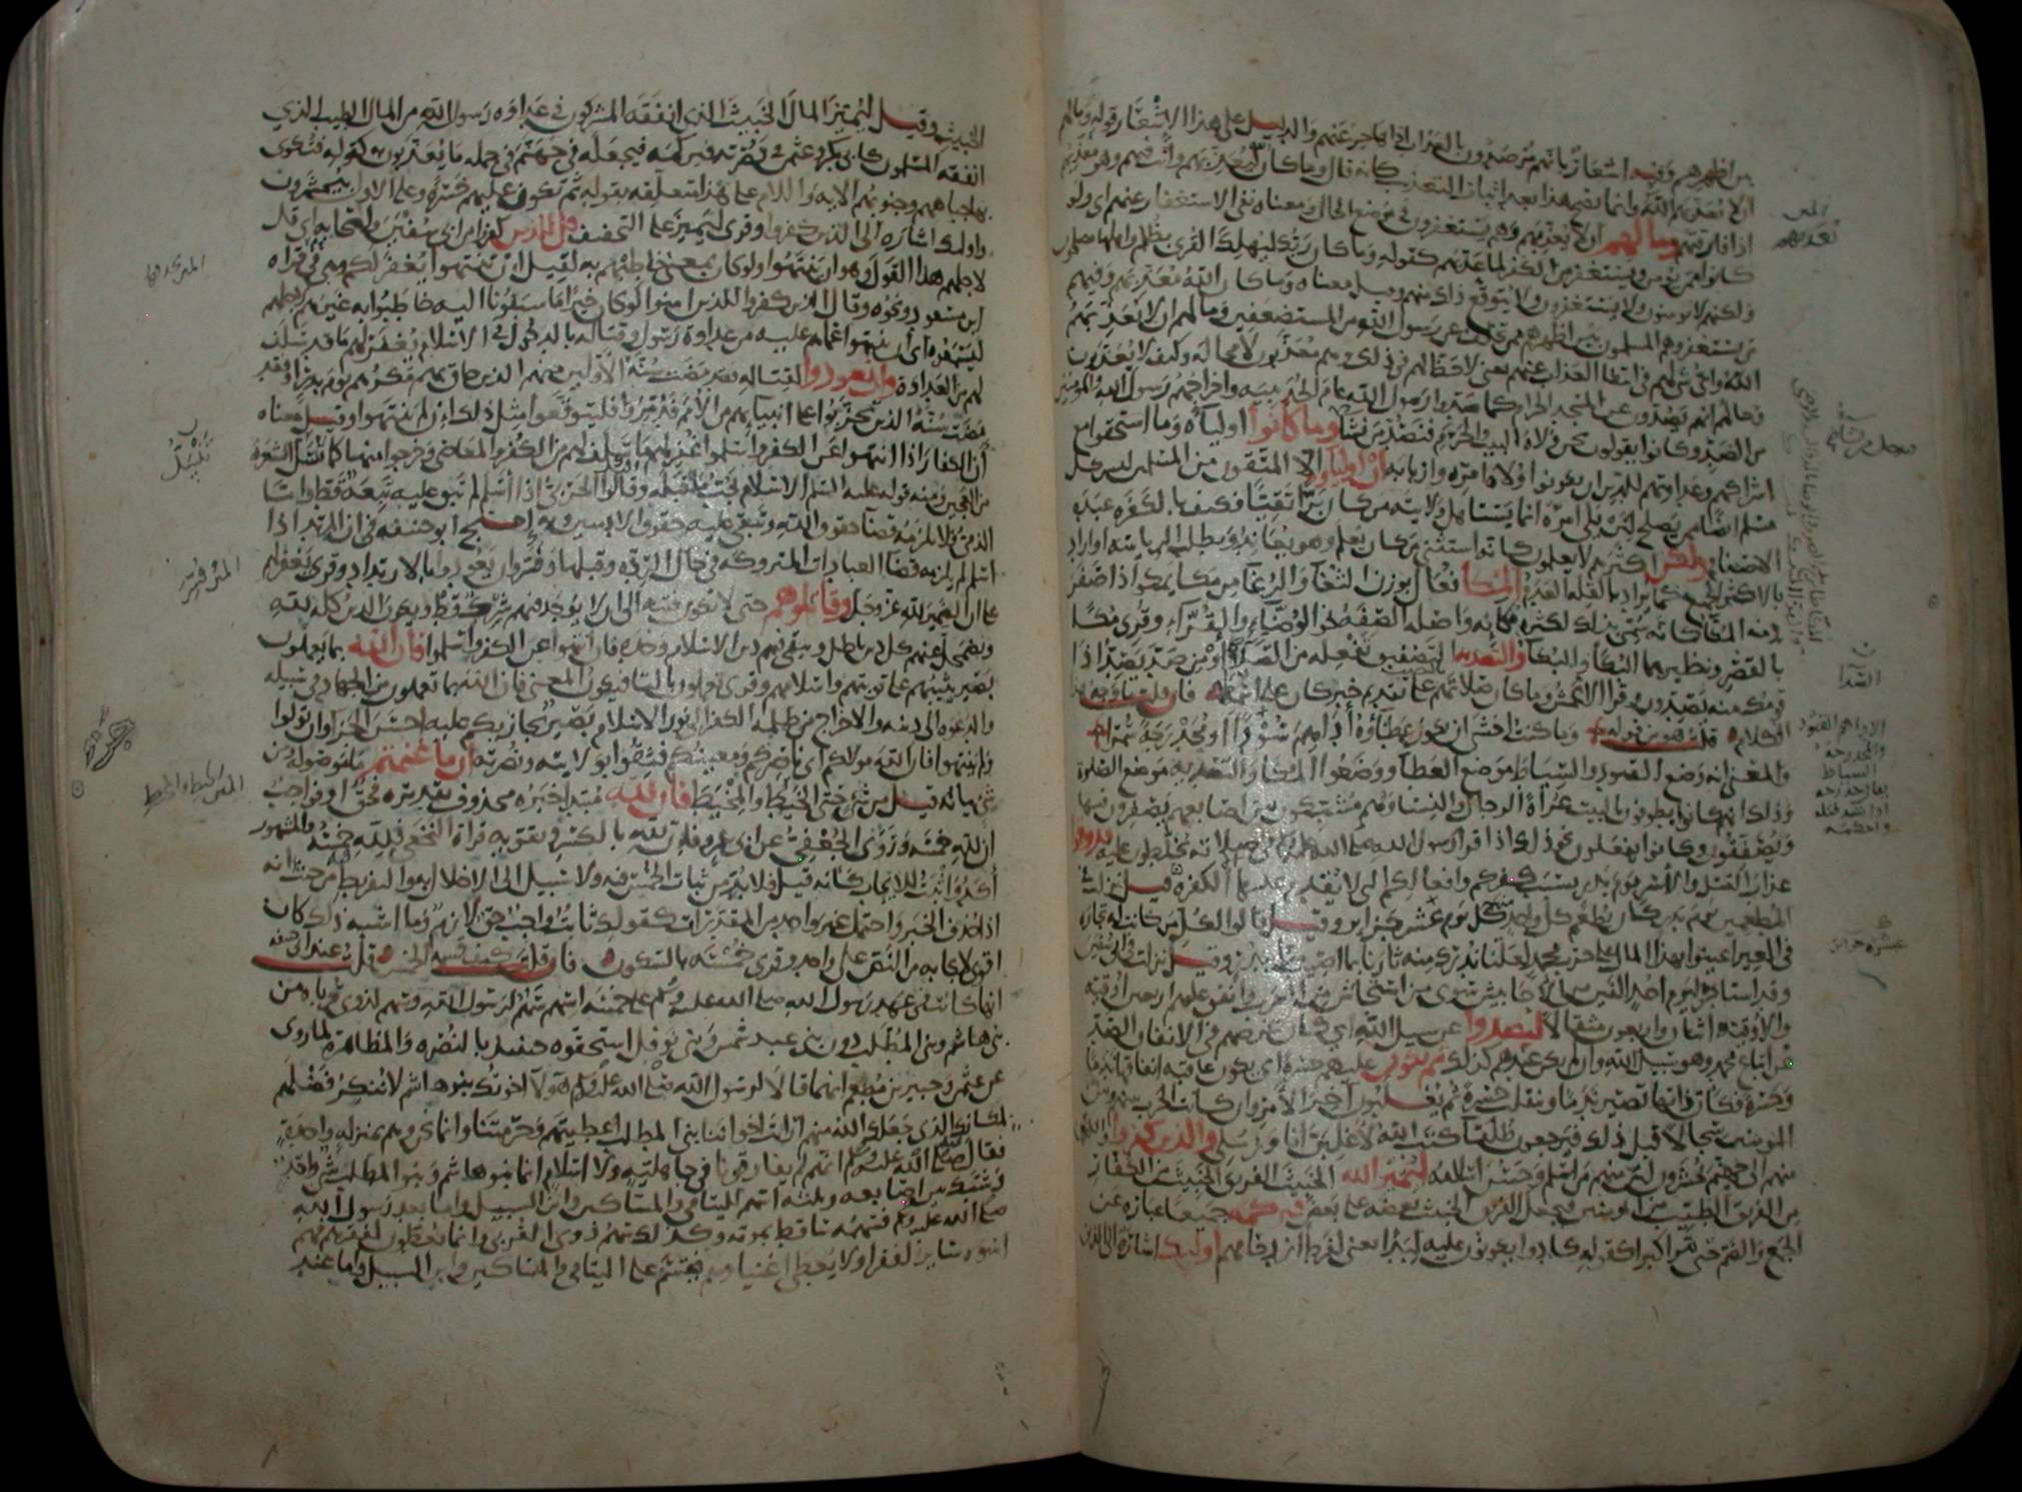 بين اظهرهم وفيه اشعار بانهم مرصدون بالعذاب اذا هاجر عنهم والدليل على هذا الاشعار قوله وما لهم
ان لا يعذبهم الله وانما يصح هذا بعد اثبات التعذيب كانه قال وما كان الله ليعذبهم وانت فيهم وهو معذبهم
اذا فارقتهم وما لهم ان لا يعذبهم وهم يستغفرون في موضع الحال ومعناه نفي الاستغفار عنهم اي ولو
كانوا ممن يؤمن ويستغفر من الكفر لما عذبهم كقوله وما كان ربك ليهلك القرى بظلم واهلها مصلحون
ولكنهم لا يؤمنون ولا يستغفرون ولا يتوقع ذلك منهم وقيل معناه وما كان الله معذبهم وفيهم
من يستغفر وهم المسلمون بين اظهرهم ممن تخلف عن رسول الله من المستضعفين وما لهم ان لا يعذبهم
الله واي شي لهم في انتفا العذاب عنهم يعني لا حظ لهم في ذلك وهم معذبون لا محالة وكيف لا يعذبون
وحالهم انهم يصدون عن المسجد الحرام كما صدوا رسول الله عام الحديبية واخراجهم رسول الله والمؤمنين
من الصد وكانوا يقولون نحن ولاة البيت والحرم فنصد من نشا وما كانوا اولياه وما استحقوا مع
اشراكهم وعداوتهم للدين ان يكونوا ولاة امره واربابه ان اولياوه الا المتقون من المسلمين ليس كل
مسلم ايضا ممن يصلح لان يلي امره انما يستاهل ولايته من كان برا تقيا فكيف بالكفرة عبدة
الاصنام ولكن اكثرهم لا يعلمون كانه استثنى من كان يعلم وهو يعاند ويطلب الرياسة او اراد
بالاكثر الجميع كما يراد بالقلة العدم المكا فعال بوزن الثغا والرغا من مكا يمكو اذا صفر
ومنه المكا كانه سمي بذلك لكثرة مكائه واصله الصفة نحو الوضاء والقراء وقري مكا
بالقصر ونظيرهما البكا والبكا والتصدية التصفيق تفعلة من الصدا او من صد يصد اذا
قومك منه يصدون وقرا الاعمش وما كان صلاتهم على تقديم خبر كان على اسمه فان قلت ما وجه هذا
الكلام قلت هو نحو من قوله وما كنت اخشى ان يكون عطاؤه اداهم سودا او محدرجة سمرا
والمعنى انه وضع القيود والسياط موضع العطا ووضعوا المكا والتصدية موضع الصلوة
وذلك انهم كانوا يطوفون بالبيت عراة الرجال والنسا وهم مشبكون بين اصابعهم يصفرون فيها
ويصفقون وكانوا يفعلون نحو ذلك اذا قرا رسول الله صلى الله عليه في صلاته يخلطون عليه فذوقوا
عذاب القتل والاسر يوم بدر بسبب كفركم وافعالكم التي لا يقدم عليها الا الكفرة قيل نزلت في
المطعمين يوم بدر كان يطعم كل واحد كل يوم عشر جزاير وقيل قالوا لكل من كانت له تجارة
في العير اعينوا بهذا المال على حرب محمد لعلنا ندرك منه ثارنا بما اصيب منا ببدر وقيل نزلت في ابي سفين
وقد استاجر ليوم احد الفين من الاحابيش سوى من استجاش من العرب وانفق عليهم اربعين اوقية
والاوقية اثنان واربعون مثقالا ليصدوا عن سبيل الله اي كان غرضهم في الانفاق الصد
عن اتباع محمد وهو سبيل الله وان لم يكن عندهم كذلك ثم تكون عليهم حسرة اي يكون عاقبة انفاقها ندما
وحسرة فكان ذاتها تصير ندما وتنقلب حسرة ثم يغلبون اخر الامر وان كانت الحرب بينهم وبين
المومنين سجالا قبل ذلك فيرجعون طلقا كتب الله لاغلبن انا ورسلي والذين كفروا والكافرون
منهم الى جهنم يحشرون لان منهم من اسلم وحسن اسلامه ليميز الله الخبيث الفريق الخبيث من الكفار
من الفريق الطيب من المومنين فيجعل الفريق الخبيث بعضه على بعض فيركمه جميعا عبارة عن
الجمع والضم حتى يتراكبوا كقوله كادوا يكونون عليه لبدا يعني لفرط ازدحامهم اوليك اشارة الى الفريق
الخبيث وقيل ليميز المال الخبيث الذي انفقه المشركون في عداوة رسول الله من المال الطيب الذي
انفقه المسلمون كابي بكر وعثمن في نصرته فيركمه فيجعله في جهنم في جملة ما يعذبون به كقوله فتكوى
بها جباههم وجنوبهم الاية واللام على هذا متعلقة بقوله ثم تكون عليهم حسرة وعلى الاول بيحشرون
واوليك اشارة الى الذين كفروا وقري ليميز على التخفيف قل للذين كفروا من ابي سفين واصحابه اي قل
لاجلهم هذا القول وهو ان ينتهوا ولو كان بمعنى خاطبهم به لقيل ان تنتهوا يغفر لكم وهي في قراة
ابن مسعود ونحوه وقال الذين كفروا للذين امنوا لو كان خيرا ما سبقونا اليه خاطبوا به غيرهم لاجلهم
ليسمعوه اي ان ينتهوا عما هم عليه من عداوة رسول وقتاله بالدخول في الاسلام يغفر لهم ما قد سلف
لهم من العداوة وان يعودوا لقتاله فقد مضت سنة الاولين منهم الذين حاق بهم مكرهم يوم بدر او فقد
مضت سنة الذين تحزبوا على انبيايهم من الامم فدمروا فليتوقعوا مثل ذلك ان لم ينتهوا وقيل معناه
ان الكفار اذا انتهوا عن الكفر واسلموا غفر لهم ما سلف لهم من الكفر والمعاصي وخرجوا منها كما تنسل الشعرة
من العجين ومنه قوله عليه السلم الاسلام يجب ما قبله وقالوا الحربي اذا اسلم لم تبق عليه تبعة قط واما
الذمي فلا يلزمه قضا حقوق الله وتبقى عليه حقوق الادميين وبه احتج ابو حنيفة في ان المرتد اذا
اسلم لم يلزمه قضا العبادات المتروكة في حال الردة وقبلها وفسر وان يعودوا بالارتداد وقري يغفر لهم
على ان الضمير لله عز وجل وقاتلوهم حتى لا تكون فتنة الى ان لا يوجد فيهم شرك قط ويكون الدين كله لله
ويضمحل عنهم كل دين باطل ويبقى فيهم دين الاسلام وحده فان انتهوا عن الكفر واسلموا فان الله بما يعملون
بصير يثيبهم على توبتهم واسلامهم وقري تعملون بالتا فيكون المعنى فان الله بما تعملون من الجهاد في سبيله
والدعوة الى دينه والاخراج من ظلمة الكفر الى نور الاسلام بصير يجازيكم عليه احسن الجزا وان تولوا
ولم ينتهوا فان الله مولاكم اي ناصركم ومعينكم فثقوا بولايته ونصرته ان ما غنمتم ما موصولة من
شي بيانه قيل من شي حتى الخيط والمخيط فان لله مبتدا خبره محذوف تقديره فحق او فواجب
ان لله خمسه وروى الجعفي عن ابي عمرو فان لله بالكسر وتقويه قراة النخعي فلله خمسه والمشهور
اكد واثبت للايجاب كانه قيل فلا بد من ثبات الخمس فيه ولا سبيل الى الاخلال به والتفريط فيه من حيث انه
اذا حذف الخبر واحتمل غير واحد من المقدرات كقولك ثابت واجب حق لازم وما اشبه ذلك كان
اقوى لايجابه من النص على واحد وقري خمسه بالسكون فان قلت كيف قسمة الخمس قلت عند ابي حنيفة
انها كانت في عهد رسول الله صلى الله عليه وسلم على خمسة اسهم سهم لرسول الله وسهم لذوي قرباه من
بني هاشم وبني المطلب دون بني عبد شمس وبني نوفل استحقوه حينيذ بالنصرة والمظاهرة لما روي
عن عثمن وجبير بن مطعم انهما قالا لرسول الله صلى الله عليه وسلم هولا اخوتك بنو هاشم لا ننكر فضلهم
لمكانك الذي جعلك الله منهم ارايت اخواننا بني المطلب اعطيتهم وحرمتنا وانما نحن وهم بمنزلة واحدة
فقال صلى الله عليه وسلم انهم لم يفارقونا في جاهلية ولا اسلام انما بنو هاشم وبنو المطلب شي واحد
وشبك بين اصابعه وثلثة اسهم لليتامى والمساكين وابن السبيل واما بعد رسول الله
صلى الله عليه وسلم فسهمه ساقط بموته وكذلك سهم ذوي القربى وانما يعطون لفقرهم فهم
اسوة ساير الفقرا ولا يعطى اغنياوهم فيقسم على اليتامى والمساكين وابن السبيل واما عند